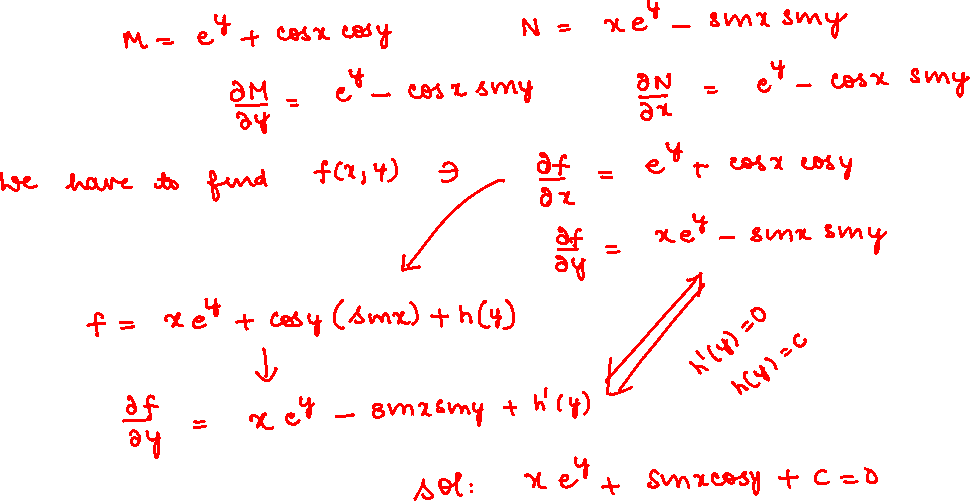 M = e^y + cosx cosy    N = xe^y − sinx siny
∂M/∂y = e^y − cosx siny    ∂N/∂x = e^y − cosx siny
We have to find f(x,y) ∋ ∂f/∂x = e^y + cosx cosy
∂f/∂y = xe^y − sinx siny
f = xe^y + cosy (sinx) + h(y)
h'(y)=0
h(y)=C
∂f/∂y = xe^y − sinxsiny + h'(y)
sol: xe^y + sinxcosy + C = 0